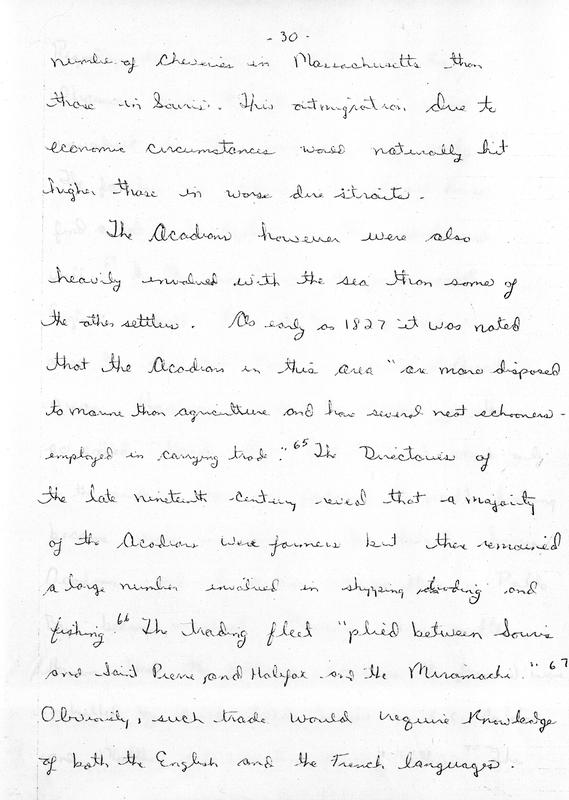 - 30 -
number of Cheveries in Massachusetts than
those in Souris. This outmigration due to
economic circumstances would naturally hit
higher those in worse dire straits.
The Acadians however were also
heavily involved with the sea than some of
the other settlers. As early as 1827 it was noted
that the Acadians in this area "are more disposed
to marine than agriculture and have several neat schooners -
employed in carrying trade."65 The Directories of
the late nineteenth century reveal that a majority
of the Acadians were farmers but there remained
a large number involved in shipping trading and
fishing.66 The trading fleet "plied between Souris
and Saint Pierre, and Halifax and the Miramachi."67
Obviously, such trade would require knowledge
of both the English and the French languages.